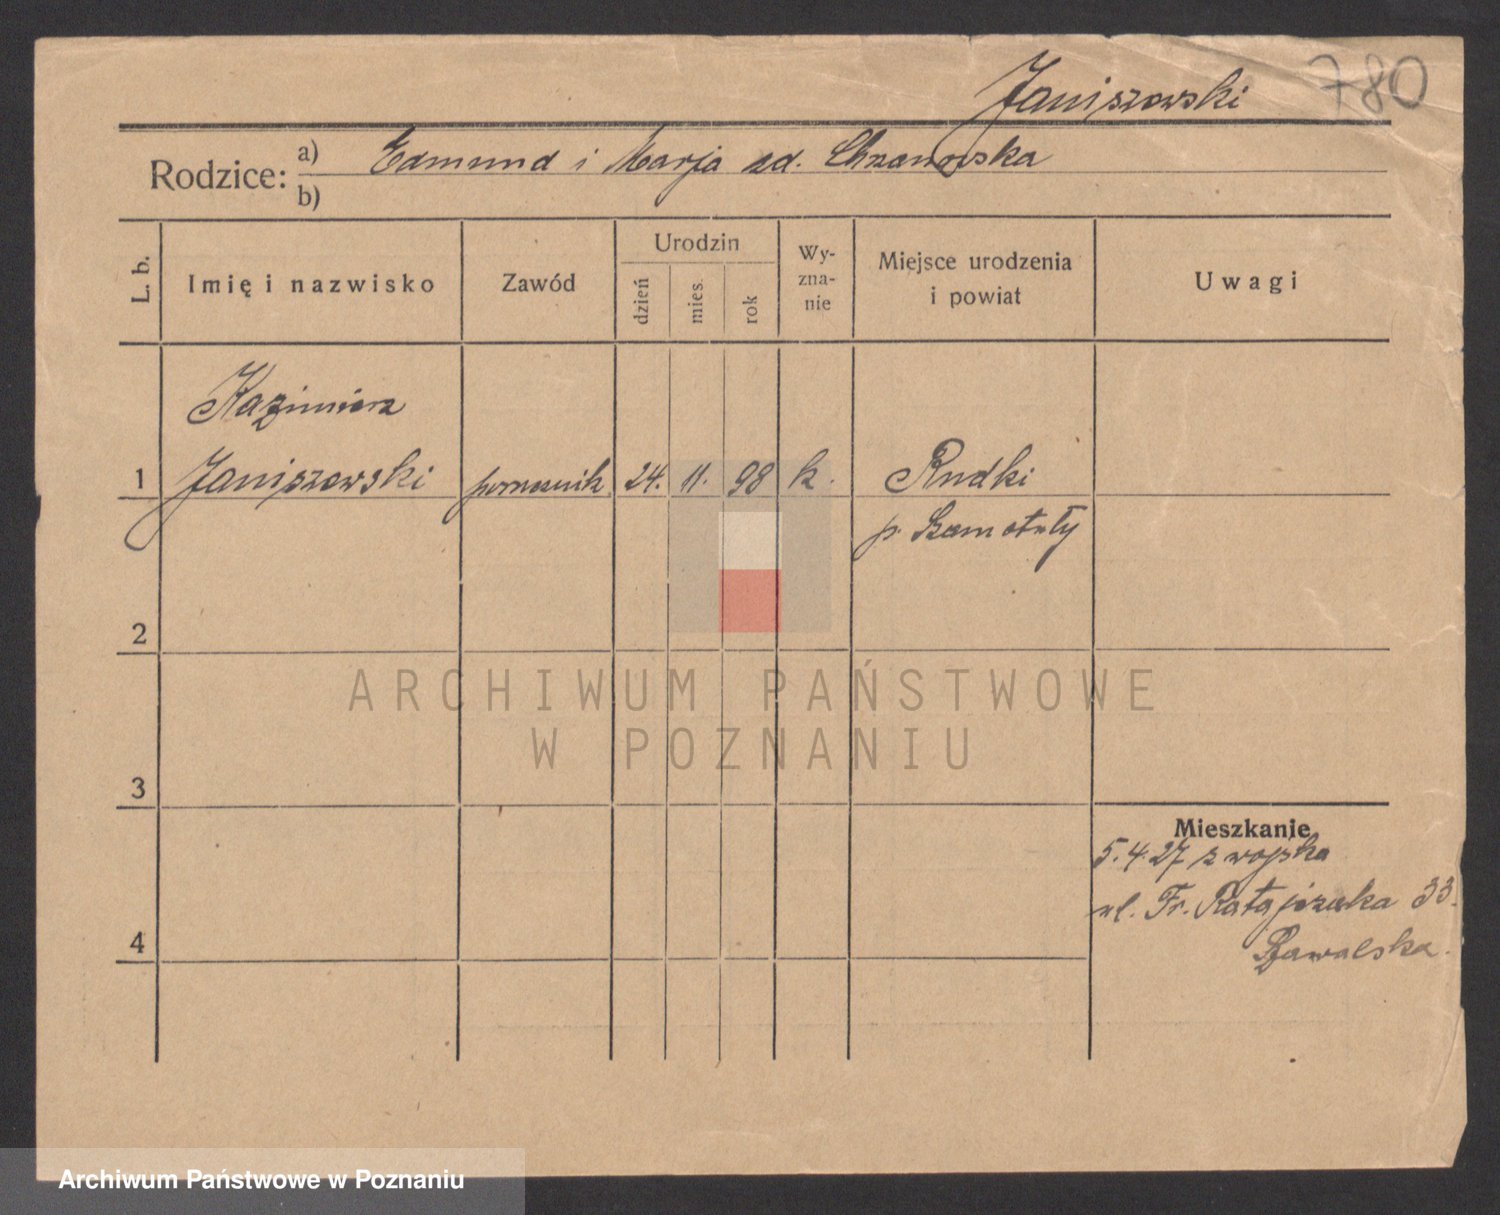 Janiszewski 780
Rodzice: a) Edmund i Marja zd. Chrzanowska
b)
L. b.
Imię i nazwisko
Zawód
Urodzin
dzień
mies.
rok
Wy-
zna-
nie
Miejsce urodzenia
i powiat
Uwagi
Kazimierz
1 Janiszewski porucznik 24. 11. 98 k. Rudki
p. Szamotuły
2
ARCHIWUM PAŃSTWOWE
W POZNANIU
3
Mieszkanie
5.4.27 z wojska
ul. Fr. Ratajczaka 33.
4
Archiwum Państwowe w Poznaniu